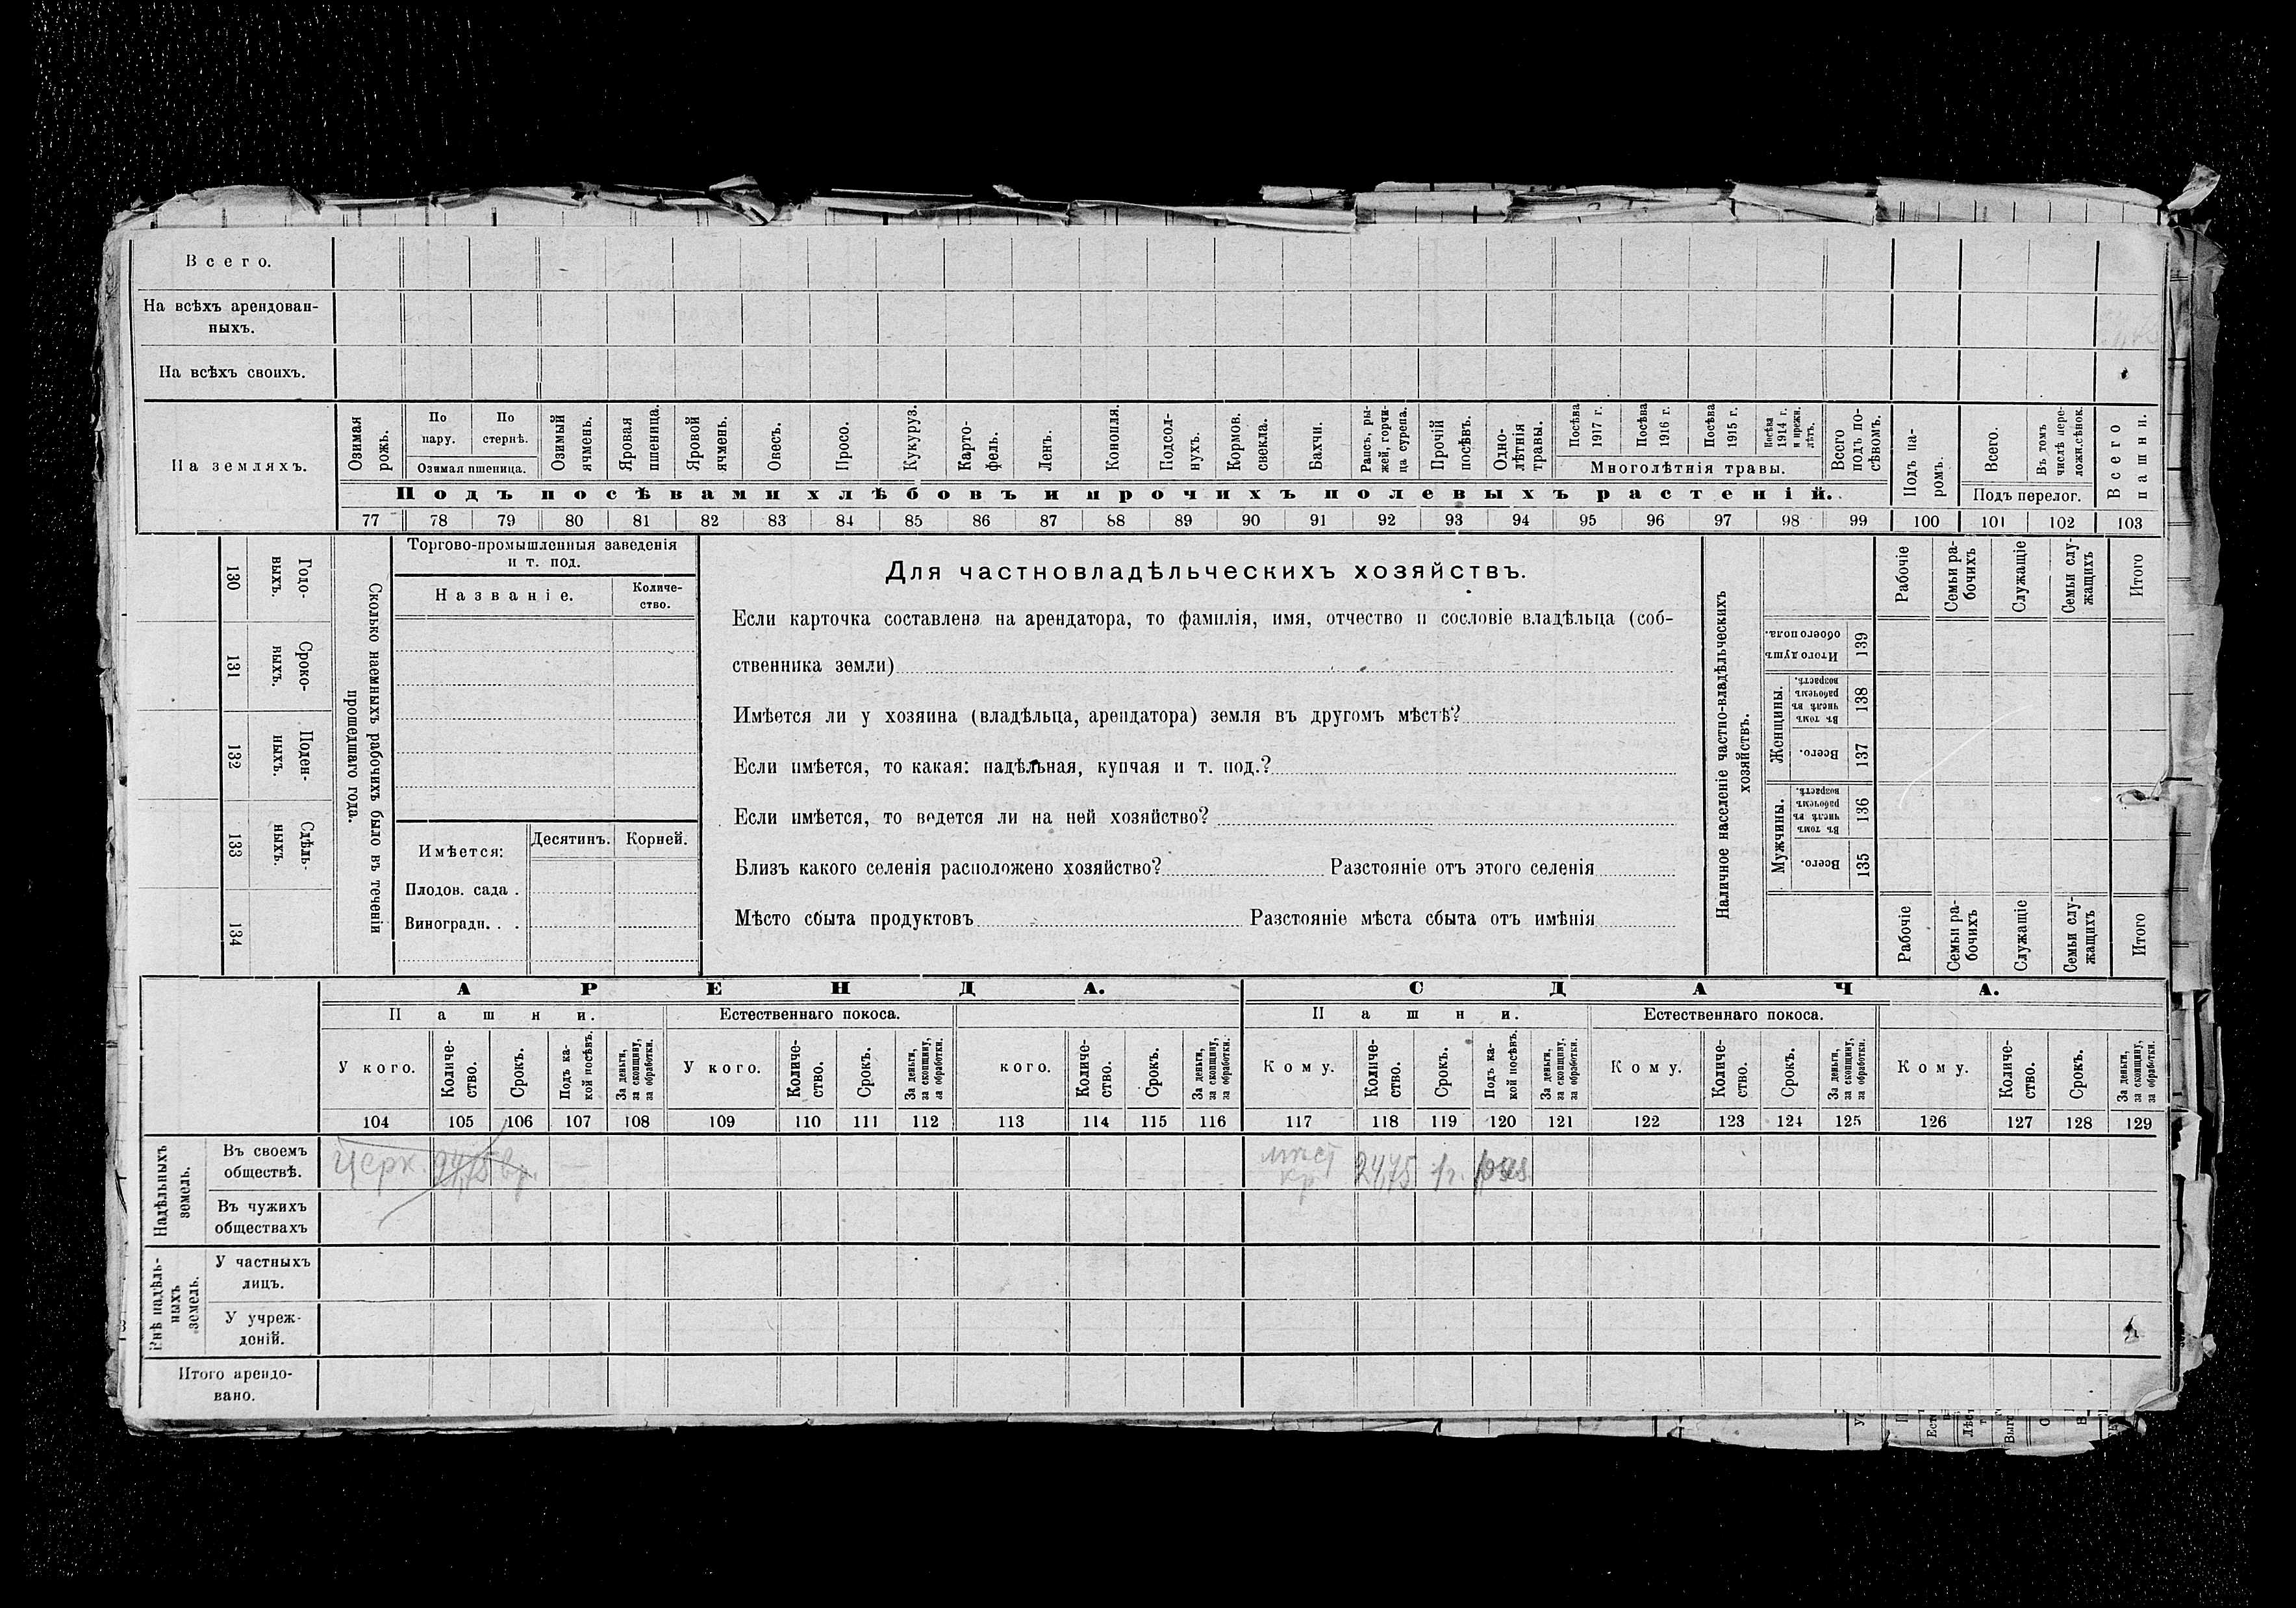 Всего.
На всѣхъ арендован-
ныхъ.
На всѣхъ своихъ.
На земляхъ.
Озимая рожь.
По пару.
По стернѣ.
Озимая пшеница.
Озимый ячмень.
Яровая пшеница.
Яровой ячмень.
Овесъ.
Просо.
Кукуруз.
Карто-
фель.
Ленъ.
Конопля.
Подсол-
нухъ.
Кормов. свекла.
Бахчи.
Рапсъ, ры-
жей, горчи-
ца сурепа.
Прочій посѣвъ.
Одно-
лѣтнія травы.
Посѣва 1917 г.
Посѣва 1916 г.
Посѣва 1915 г.
Посѣва 1914 г. и прежн. лѣтъ.
Многолѣтнія травы.
Всего подъ по-
сѣвомъ.
Подъ па-
ромъ.
Всего.
Въ томъ числѣ пере-
ложн.сѣнок.
Подъ перелог.
Всего пашни.
Подъ посѣвами хлѣбовъ и прочихъ полевыхъ растеній.
77 78 79 80 81 82 83 84 85 86 87 88 89 90 91 92 93 94 95 96 97 98 99 100 101 102 103
130 Годо-
ныхъ.
131 Сроко-
ныхъ.
132 Поден-
ныхъ.
133 Сдѣль-
ныхъ.
134
Сколько наемныхъ рабочихъ было въ теченіи
прошедшаго года.
Торгово-промышленныя заведенія
и т. под.
Названіе.
Количе-
ство.
Имѣется:
Десятинъ.
Корней.
Плодов. сада .
Виноградн. . .
Для частновладѣльческихъ хозяйствъ.
Если карточка составлена на арендатора, то фамилія, имя, отчество и сословіе владѣльца (соб-
ственника земли)
Имѣется ли у хозяина (владѣльца, арендатора) земля въ другомъ мѣстѣ?
Если имѣется, то какая: надѣльная, купчая и т. под.?
Если имѣется, то ведется ли на ней хозяйство?
Близъ какого селенія расположено хозяйство? Разстояніе отъ этого селенія
Мѣсто сбыта продуктовъ Разстояніе мѣста сбыта отъ имѣнія
Наличное населеніе частно-владѣльческихъ
хозяйствъ.
Рабочіе
Семьи ра-
бочихъ
Служащіе
Семьи слу-
жащихъ
Итого
Итого душъ обоего пола. 139
Женщины.
Въ томъ числѣ въ рабочемъ возрастѣ. 138
Всего. 137
Мужчины.
Въ томъ числѣ въ рабочемъ возрастѣ. 136
Всего. 135
Рабочіе
Семьи ра-
бочихъ
Служащіе
Семьи слу-
жащихъ
Итого
АРЕНДА.
СДАЧА.
Пашни.
Естественнаго покоса.
Пашни.
Естественнаго покоса.
У кого.
Количе-
ство.
Срокъ.
Подъ ка-
кой посѣвъ.
За деньги,
за скопщину,
за обработки.
У кого.
Количе-
ство.
Срокъ.
За деньги,
за скопщину,
за обработки.
кого.
Количе-
ство.
Срокъ.
За деньги,
за скопщину,
за обработки.
Кому.
Количе-
ство.
Срокъ.
Подъ ка-
кой посѣвъ.
За деньги,
за скопщину,
за обработки.
Кому.
Количе-
ство.
Срокъ.
За деньги,
за скопщину,
за обработки.
Кому.
Количе-
ство.
Срокъ.
За деньги,
за скопщину,
за обработки.
104 105 106 107 108 109 110 111 112 113 114 115 116 117 118 119 120 121 122 123 124 125 126 127 128 129
Надѣльныхъ
земель.
Въ своемъ
обществѣ.
Церк. 24,75
мѣст кр 24,75 1 г.
Въ чужихъ
обществахъ
Внѣ надѣль-
ныхъ
земель.
У частныхъ
лицъ.
У учреж-
деній.
Итого арендо-
вано.